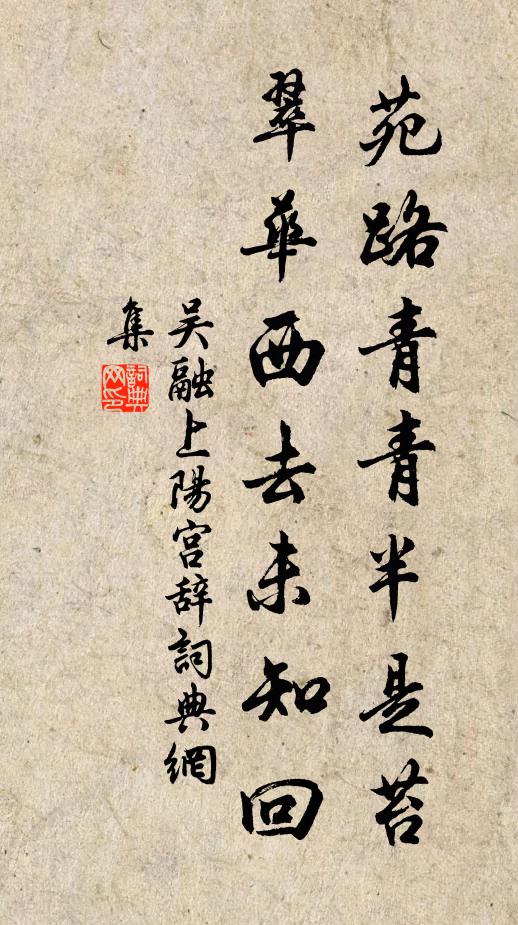 苑路青青半是苔
翠華西去未知回
吴融上陽宫辞詞典網
集
詞典网印